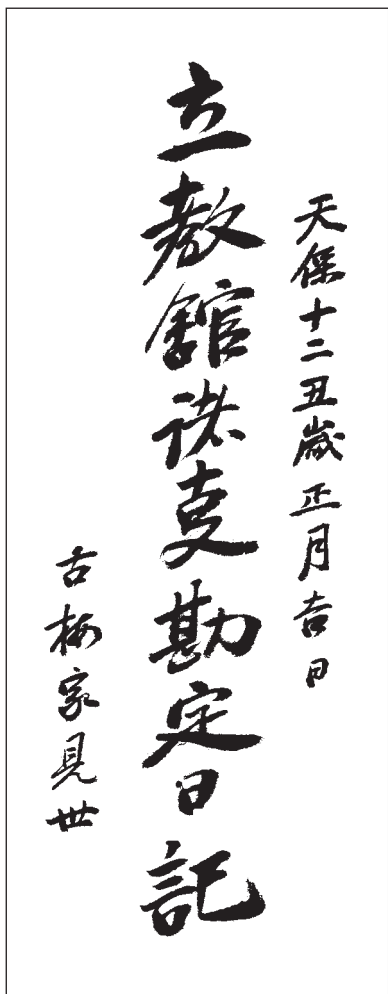 天保十二丑歳正月吉日
立教舘諸支勘定日記
古梅家見世